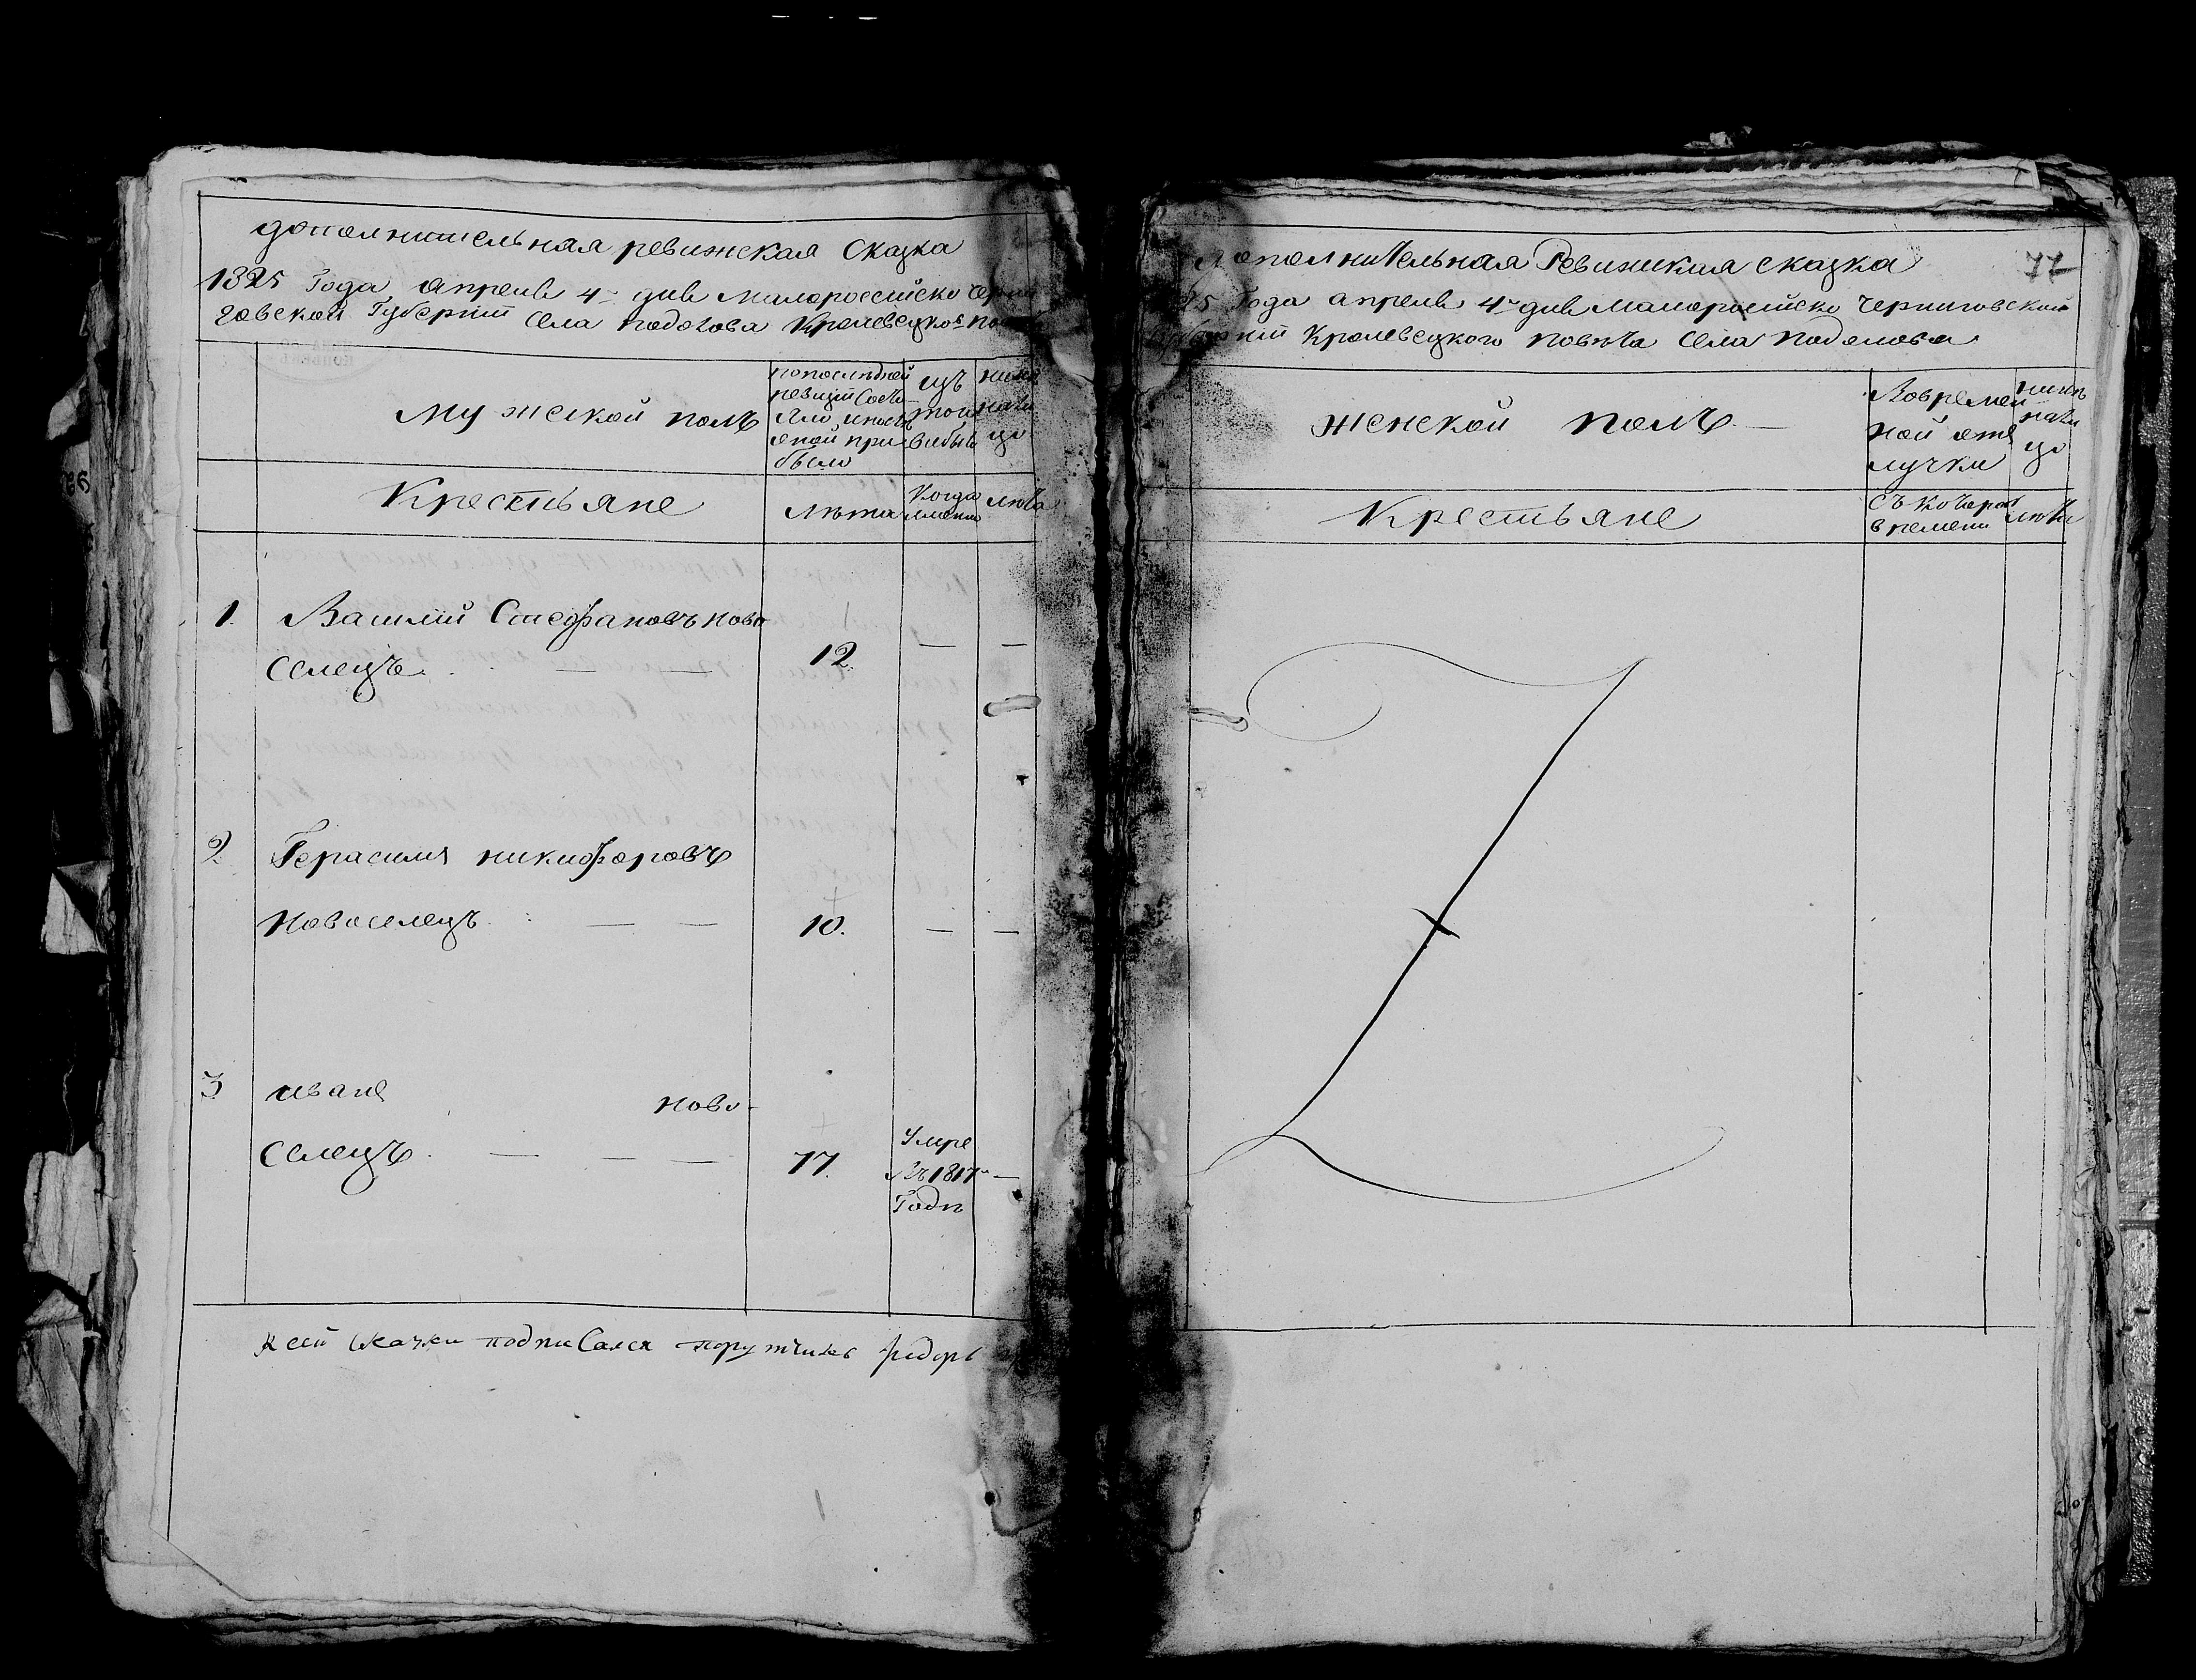 дополнительная ревижская Сказка
1825 Года апреля 4го дня Малоросейско Черни
говской Губернии Села Подолова Кролевецког пов
мужеской полъ
попоследней
ревизии Состо
яло, ипосл
оной при
было
изъ
того
выбыв
ныне
нали
цо
Крестьяне
Лета
Когда
имянно
лета
1. Василий Стефановъ ново
селецъ. — — 12. — —
2. Герасимъ никифоровъ
Новоселецъ. — — 10. — —
3 иванъ ново-
селецъ. — — — 77. Умре
Въ 1817м —
Годе
К сей сказки подписался порутчикъ федоръ
77
Дополнительная Ревижская сказка
25 Года апреля 4го дня Малоросийско Черниговской
Кролевецкого повета Села Подолова
женской полъ —
Вовремен
ной отъ
лучке
ныне
нали
цо
Крестьяне
Съ которого
времени
лета